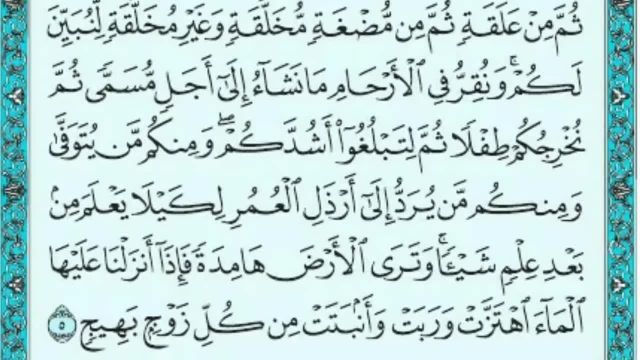 ثُمَّ مِنْ عَلَقَةٍ ثُمَّ مِن مُّضْغَةٍ مُّخَلَّقَةٍ وَغَيْرِ مُخَلَّقَةٍ لِّنُبَيِّنَ
لَكُمْ ۚ وَنُقِرُّ فِي ٱلْأَرْحَامِ مَا نَشَآءُ إِلَىٰٓ أَجَلٍ مُّسَمًّى ثُمَّ
نُخْرِجُكُمْ طِفْلًا ثُمَّ لِتَبْلُغُوٓا۟ أَشُدَّكُمْ ۖ وَمِنكُم مَّن يُتَوَفَّىٰ
وَمِنكُم مَّن يُرَدُّ إِلَىٰٓ أَرْذَلِ ٱلْعُمُرِ لِكَيْلَا يَعْلَمَ مِنۢ
بَعْدِ عِلْمٍ شَيْـًٔا ۚ وَتَرَى ٱلْأَرْضَ هَامِدَةً فَإِذَآ أَنزَلْنَا عَلَيْهَا
ٱلْمَآءَ ٱهْتَزَّتْ وَرَبَتْ وَأَنۢبَتَتْ مِن كُلِّ زَوْجٍۭ بَهِيجٍ ۝٥